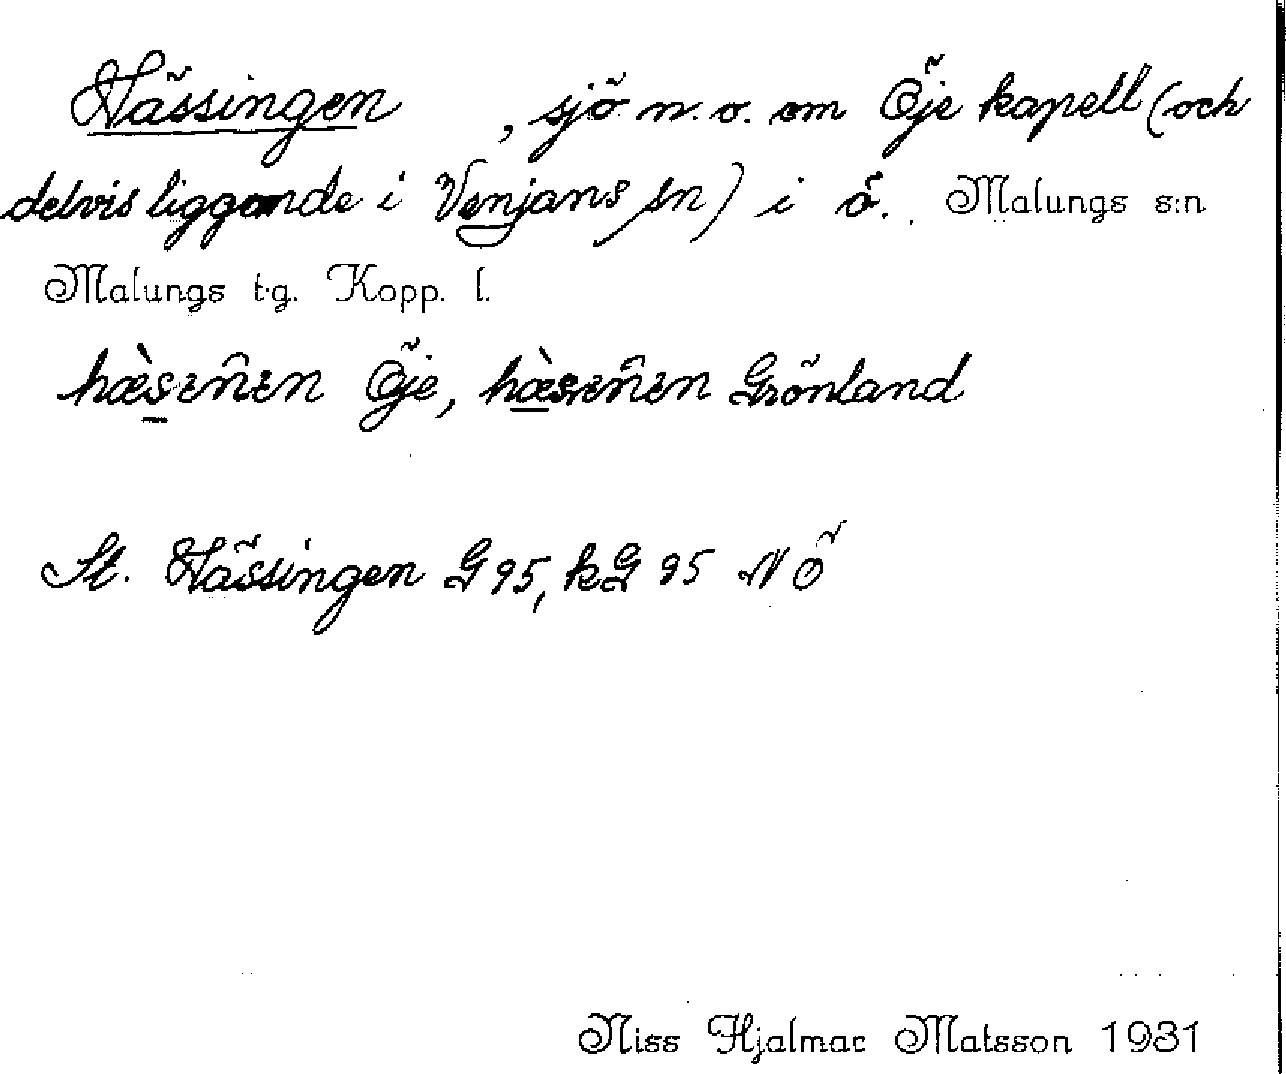 Hässingen, sjö n.o. om Öje kapell (och
delvis liggande i Venjans sn) i ö. Malungs s:n
Malungs t.g. Kopp. l.
Öje, Grönland
St. Hässingen G 95, kG 95 NÖ
Niss Hjalmar Matsson 1931